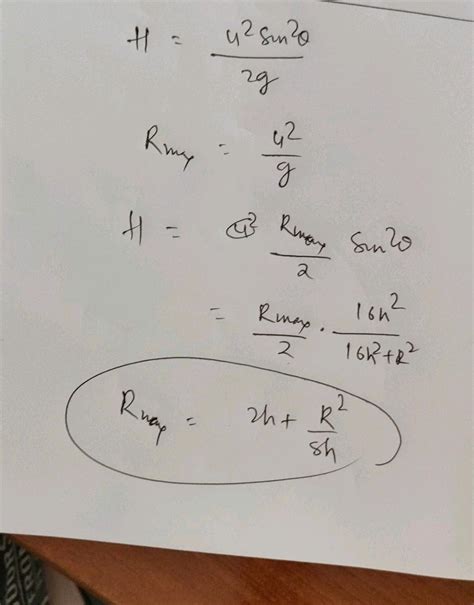 H = u² sin²θ / 2g
Rmax = u² / g
H = Rmax / 2 sin²θ
= Rmax / 2 · 16h² / 16h² + R²
Rmax = 2h + R² / 8h